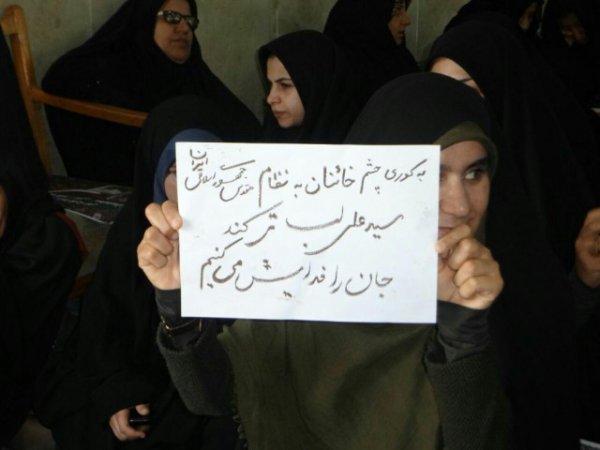 به کوری چشم خائنان به نظام مقدس جمهوری اسلامی ایران
سید علی لب تر کند
جان را فدایش می کنیم